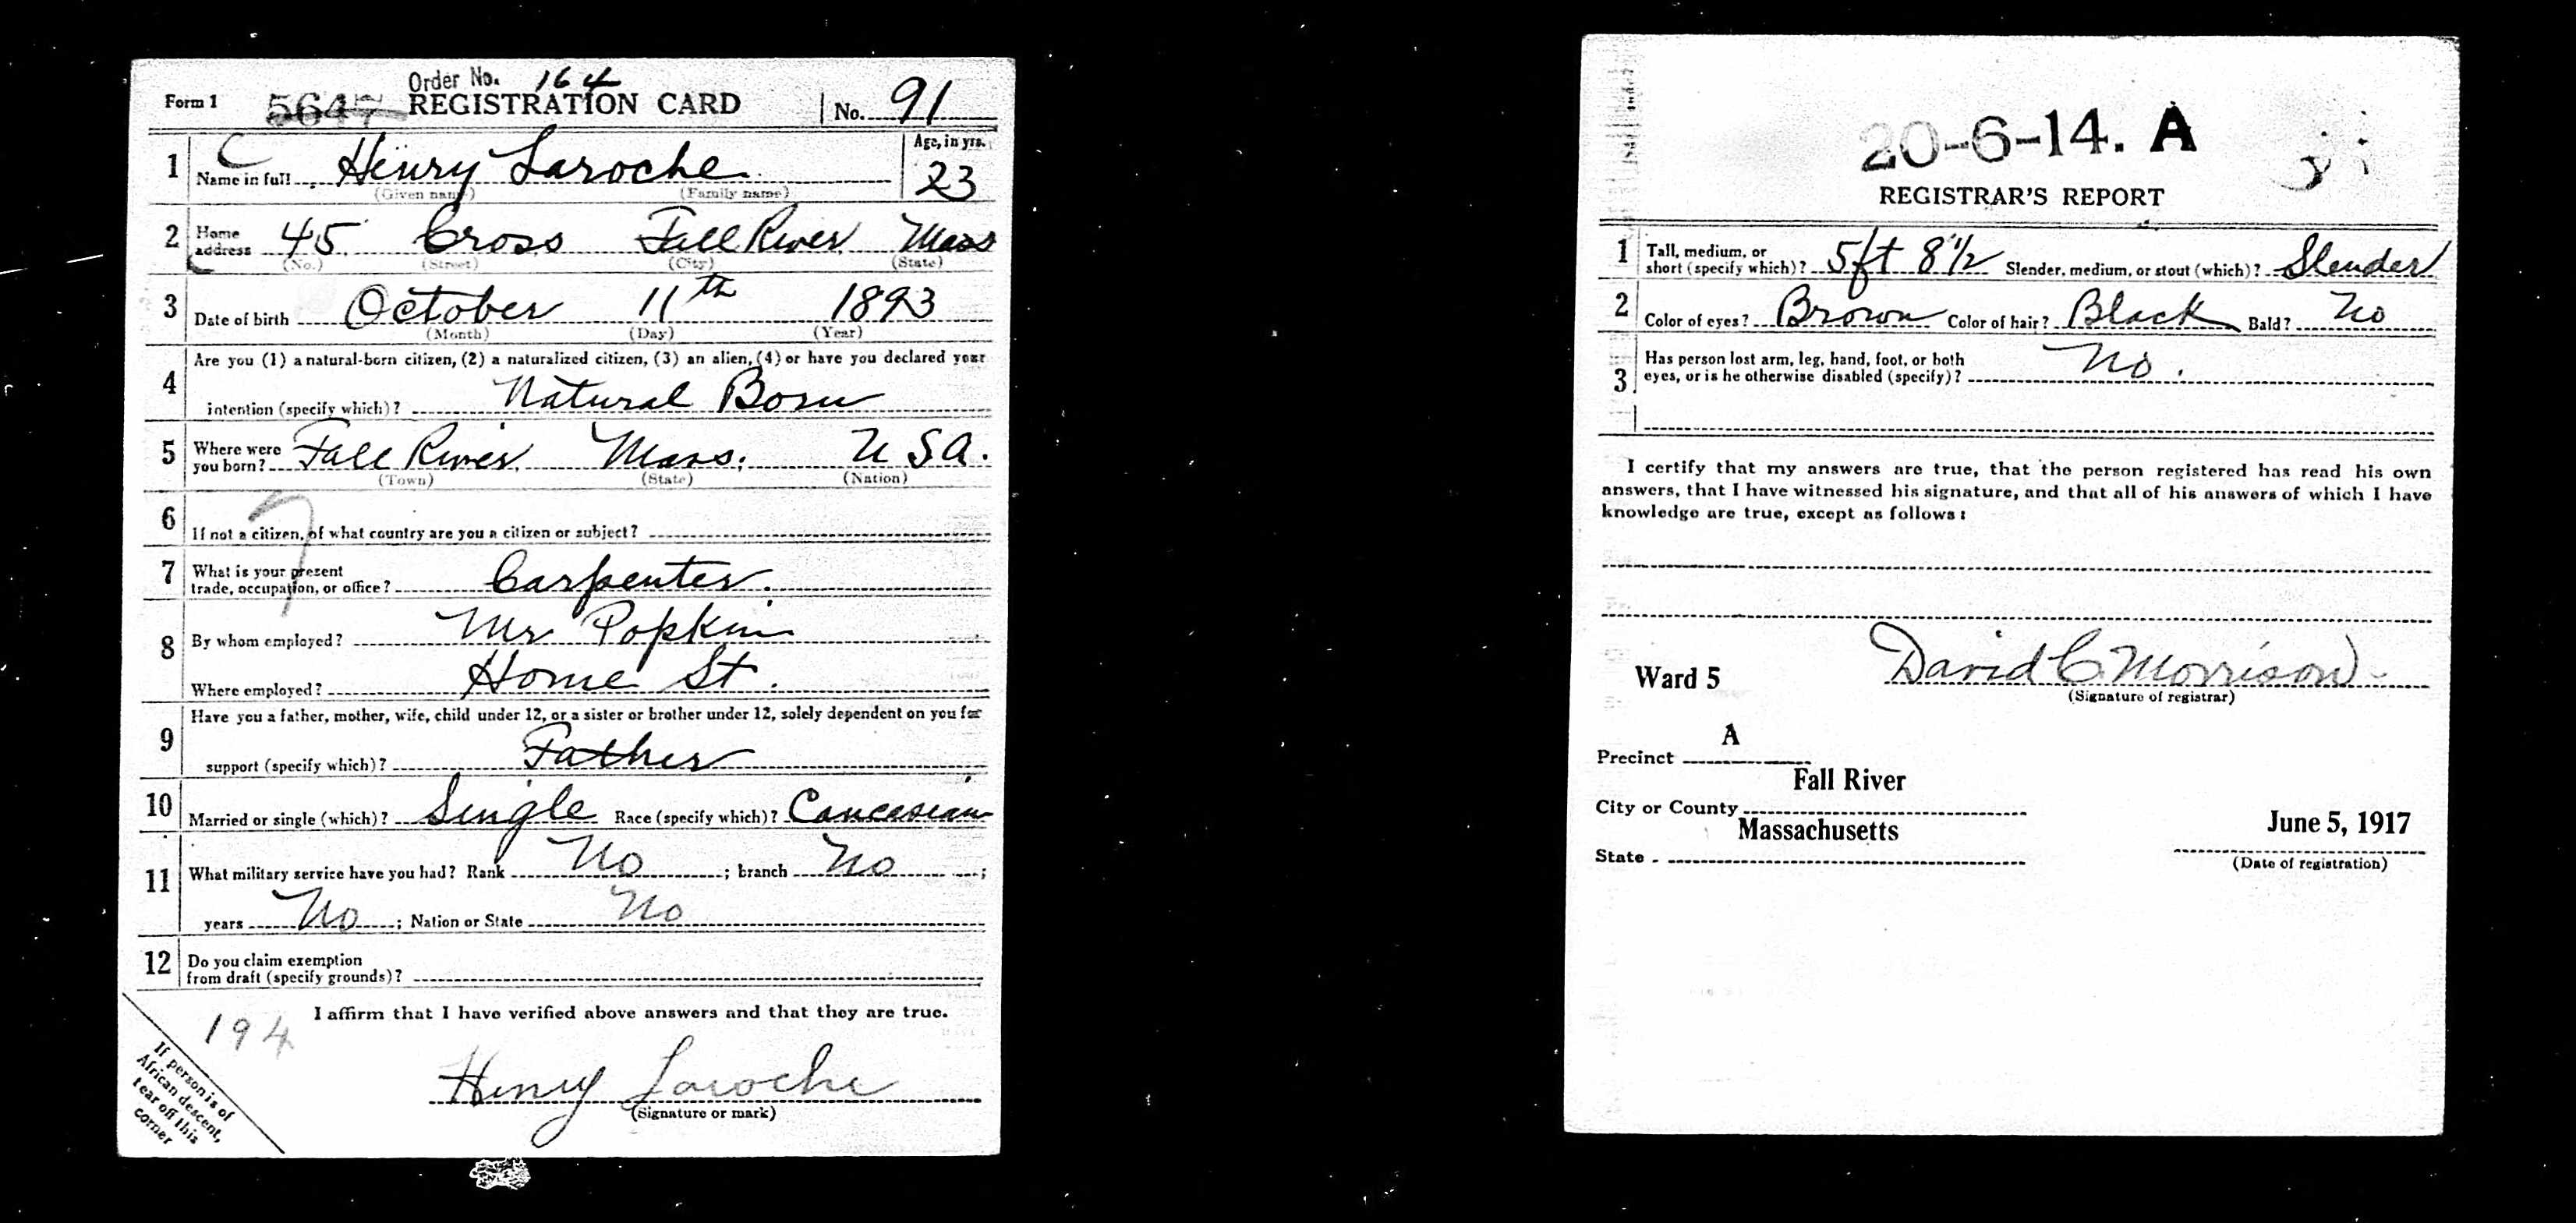 Order No. 164
Form 1 5647 REGISTRATION CARD No. 91
1 Name in full Henry Laroche Age, in yrs. 23
(Given name) (Family name)
2 Home address 45 Cross Fall River Mass
(No.) (Street) (City) (State)
3 Date of birth October 11th 1893
(Month) (Day) (Year)
4 Are you (1) a natural-born citizen, (2) a naturalized citizen, (3) an alien, (4) or have you declared your
intention (specify which)? Natural Born
5 Where were you born? Fall River Mass. U S A.
(Town) (State) (Nation)
6 If not a citizen, of what country are you a citizen or subject?
7 What is your present
trade, occupation, or office? Carpenter.
8 By whom employed? Mr Popkin
Where employed? Home St.
9 Have you a father, mother, wife, child under 12, or a sister or brother under 12, solely dependent on you for
support (specify which)? Father
10 Married or single (which)? Single Race (specify which)? Caucasian
11 What military service have you had? Rank No ; branch No ;
years No ; Nation or State No
12 Do you claim exemption
from draft (specify grounds)?
I affirm that I have verified above answers and that they are true.
194
Henry Laroche
(Signature or mark)
If person is of
African descent,
tear off this
corner
20-6-14. A
REGISTRAR'S REPORT
1 Tall, medium, or
short (specify which)? 5ft 8 1/2 Slender, medium, or stout (which)? Slender
2 Color of eyes? Brown Color of hair? Black Bald? No
3 Has person lost arm, leg, hand, foot, or both
eyes, or is he otherwise disabled (specify)? No.
I certify that my answers are true, that the person registered has read his own
answers, that I have witnessed his signature, and that all of his answers of which I have
knowledge are true, except as follows:
David C. Morrison
Ward 5 (Signature of registrar)
Precinct A
City or County Fall River
State Massachusetts
June 5, 1917
(Date of registration)